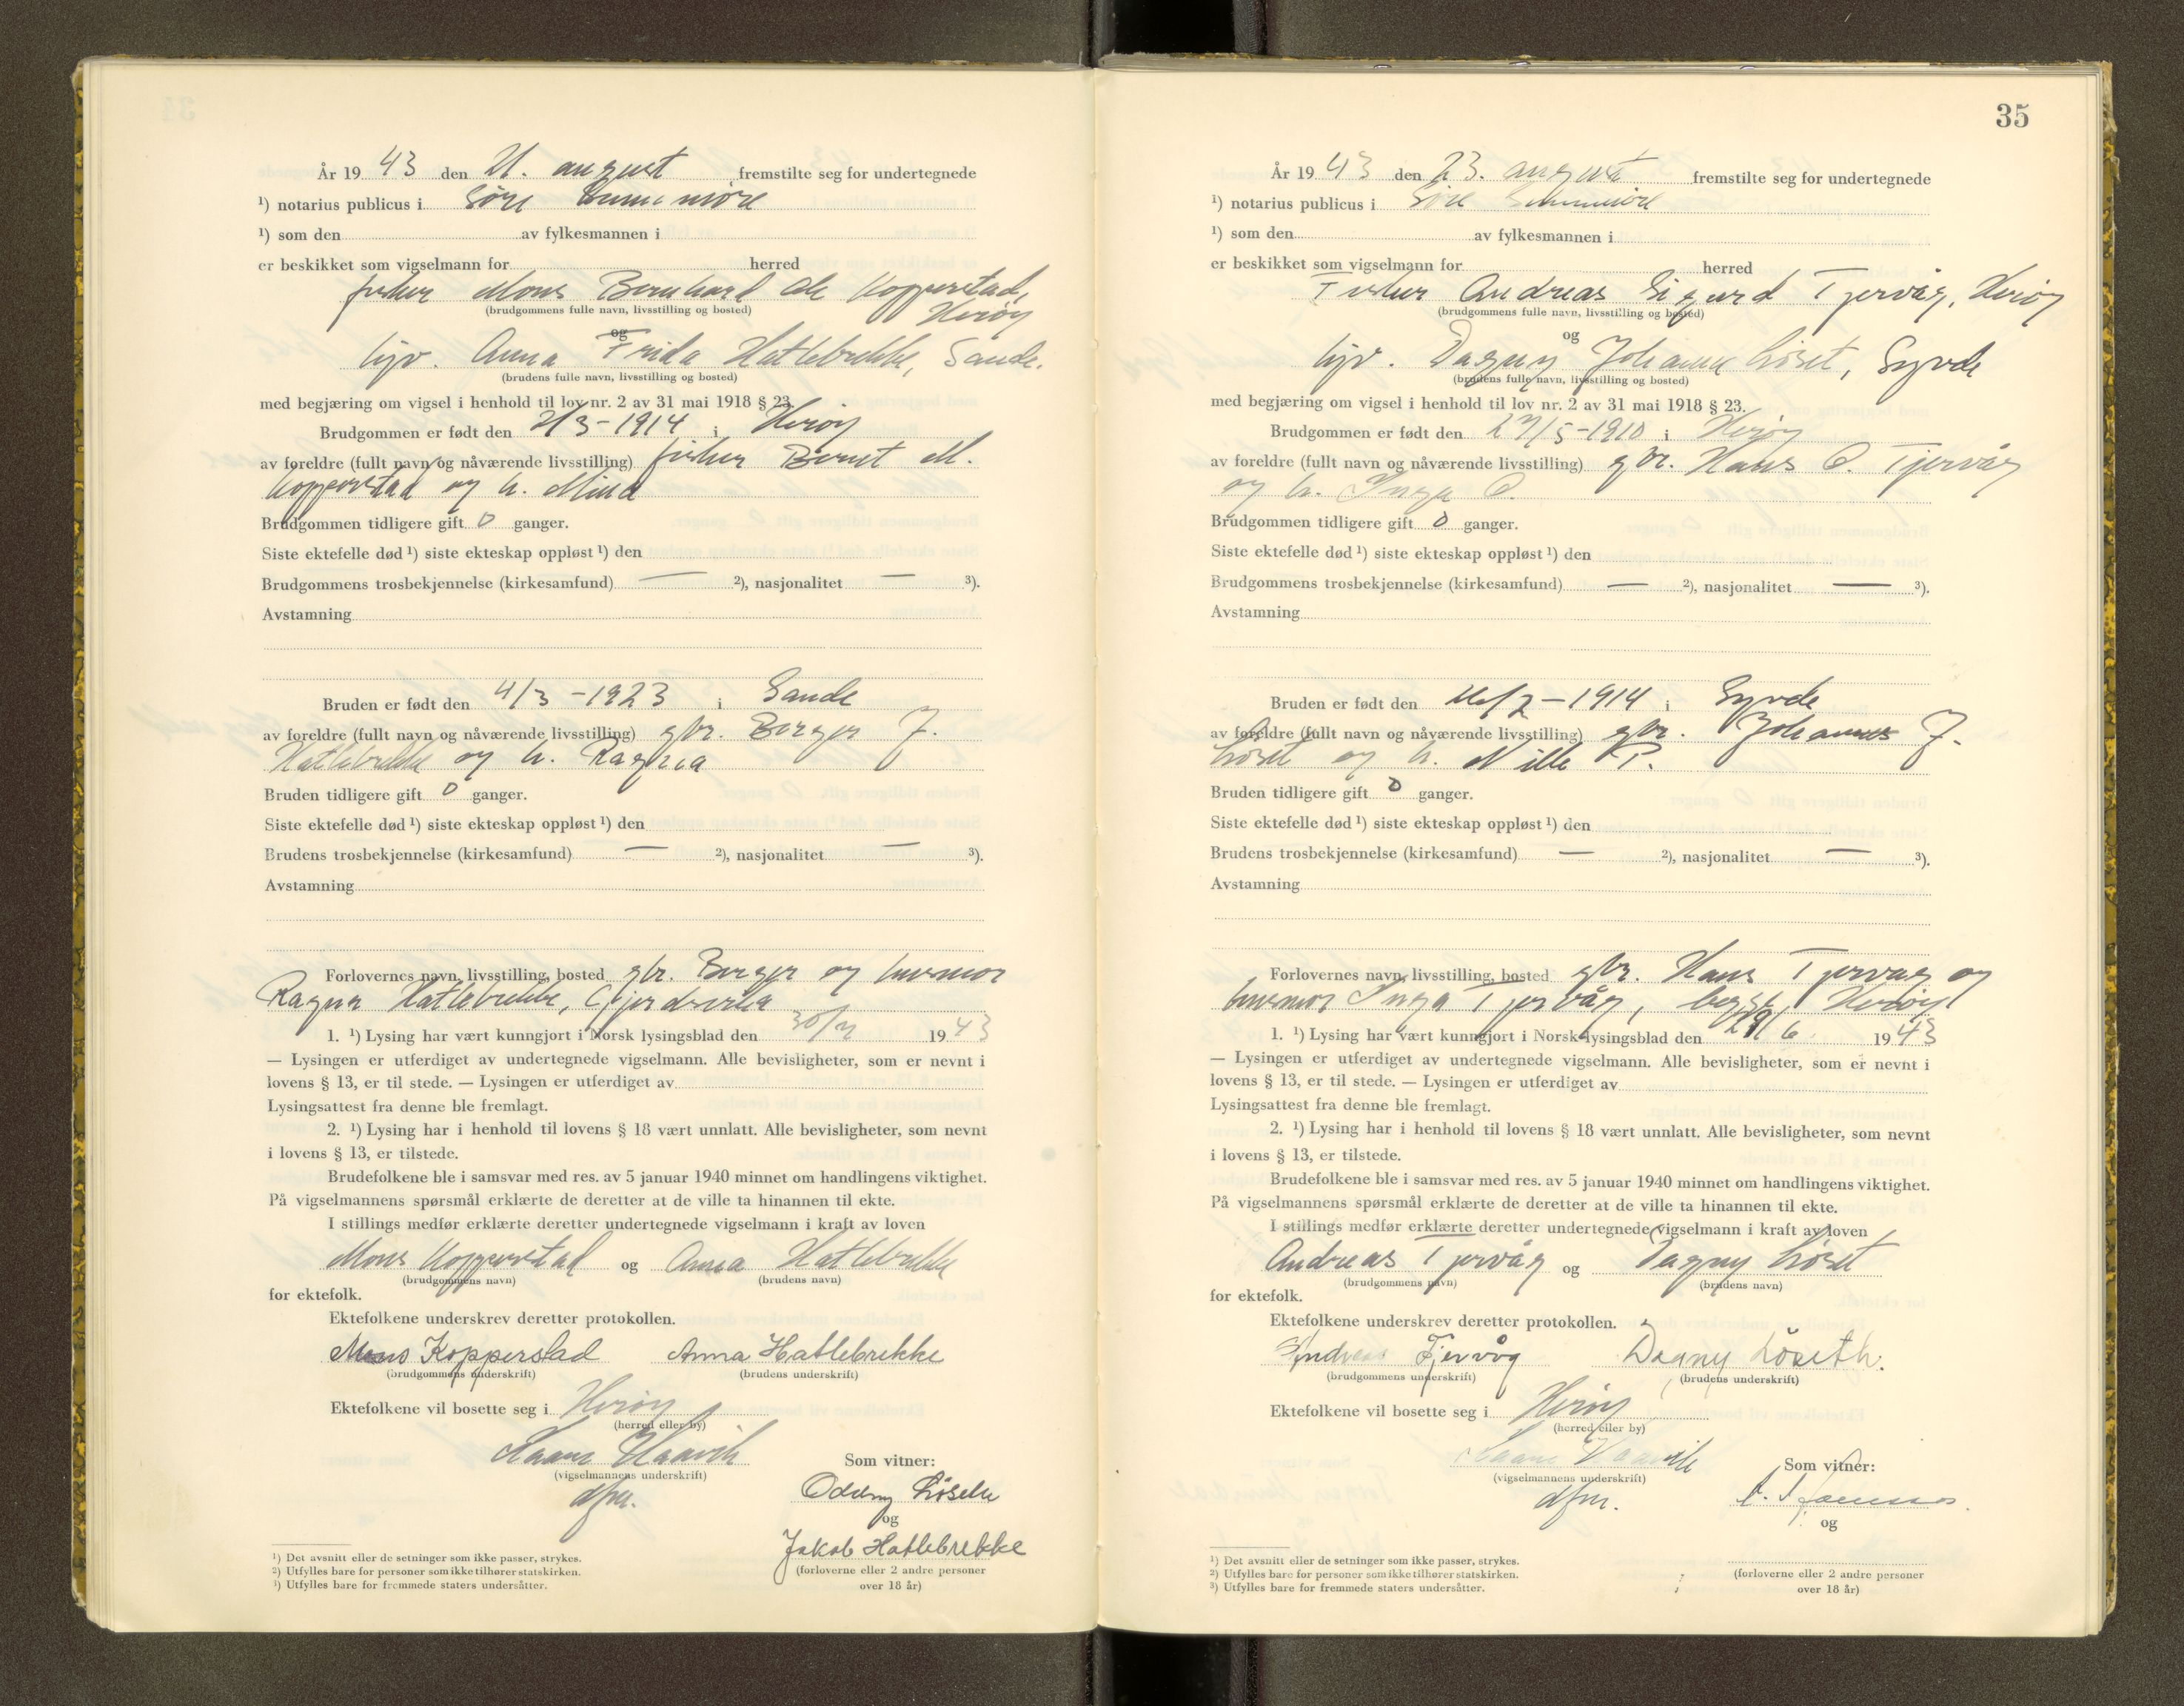 År 19 43 den 21. august fremstilte seg for undertegnede
¹) notarius publicus i Søre Sunnmøre
¹) som den av fylkesmannen i
er beskikket som vigselmann for herred
fisker Mons Bernhard Kopperstad,
Herøy
(brudgommens fulle navn, livsstilling og bosted)
og
tjp. Anna Frida Hatlebrekke, Sande.
(brudens fulle navn, livsstilling og bosted)
med begjæring om vigsel i henhold til lov nr. 2 av 31 mai 1918 § 23.
Brudgommen er født den 2/3-1914 i Herøy
av foreldre (fullt navn og nåværende livsstilling) fisker Bernt M.
Kopperstad og h.
Brudgommen tidligere gift 0 ganger.
Siste ektefelle død ¹) siste ekteskap oppløst ¹) den
Brudgommens trosbekjennelse (kirkesamfund) — ²), nasjonalitet — ³).
Avstamning
Bruden er født den 4/3-1923 i Sande
av foreldre (fullt navn og nåværende livsstilling) gbr. Berger J.
Hatlebrekke og h. Ragna
Bruden tidligere gift 0 ganger.
Siste ektefelle død ¹) siste ekteskap oppløst ¹) den
Brudens trosbekjennelse (kirkesamfund) — ²), nasjonalitet — ³).
Avstamning
Forlovernes navn, livsstilling, bosted gbr. Berger og husmor
Ragna Hatlebrekke, Gjerdsvika
1. ¹) Lysing har vært kunngjort i Norsk lysingsblad den 30/7 1943
— Lysingen er utferdiget av undertegnede vigselmann. Alle bevisligheter, som er nevnt i
lovens § 13, er til stede. — Lysingen er utferdiget av
Lysingsattest fra denne ble fremlagt.
2. ¹) Lysing har i henhold til lovens § 18 vært unnlatt. Alle bevisligheter, som nevnt
i lovens § 13, er tilstede.
Brudefolkene ble i samsvar med res. av 5 januar 1940 minnet om handlingens viktighet.
På vigselmannens spørsmål erklærte de deretter at de ville ta hinannen til ekte.
I stillings medfør erklærte deretter undertegnede vigselmann i kraft av loven
Mons Kopperstad og Anna Hatlebrekke
(brudgommens navn) (brudens navn)
for ektefolk.
Ektefolkene underskrev deretter protokollen.
Mons Kopperstad Anna Hatlebrekke
(brudgommens underskrift) (brudens underskrift)
Ektefolkene vil bosette seg i Herøy
(herred eller by)
(vigselmannens underskrift)
dfm.
Som vitner:
Oddny
og
Jakob Hatlebrekke
(forloverne eller 2 andre personer
over 18 år)
¹) Det avsnitt eller de setninger som ikke passer, strykes.
²) Utfylles bare for personer som ikke tilhører statskirken.
³) Utfylles bare for fremmede staters undersåtter.
35
År 19 43 den 23. august fremstilte seg for undertegnede
¹) notarius publicus i Søre Sunnmøre
¹) som den av fylkesmannen i
er beskikket som vigselmann for herred
Fisker Andreas Sigurd Tjervåg, Herøy
(brudgommens fulle navn, livsstilling og bosted)
og
tjp. Dagny Johanna Løset, Syvde
(brudens fulle navn, livsstilling og bosted)
med begjæring om vigsel i henhold til lov nr. 2 av 31 mai 1918 § 23.
Brudgommen er født den 27/5-1910 i Herøy
av foreldre (fullt navn og nåværende livsstilling) gbr. Hans O. Tjervåg
og h. Inga O.
Brudgommen tidligere gift 0 ganger.
Siste ektefelle død ¹) siste ekteskap oppløst ¹) den
Brudgommens trosbekjennelse (kirkesamfund) — ²), nasjonalitet — ³).
Avstamning
Bruden er født den -1914 i Syvde
av foreldre (fullt navn og nåværende livsstilling) gbr. Johannes J.
Løset og h. Nille P.
Bruden tidligere gift 0 ganger.
Siste ektefelle død ¹) siste ekteskap oppløst ¹) den
Brudens trosbekjennelse (kirkesamfund) — ²), nasjonalitet — ³).
Avstamning
Forlovernes navn, livsstilling, bosted gbr. Hans Tjervåg og
husmor Inga Tjervåg, begge Herøy
1. ¹) Lysing har vært kunngjort i Norsk lysingsblad den 29/6 1943
— Lysingen er utferdiget av undertegnede vigselmann. Alle bevisligheter, som er nevnt i
lovens § 13, er til stede. — Lysingen er utferdiget av
Lysingsattest fra denne ble fremlagt.
2. ¹) Lysing har i henhold til lovens § 18 vært unnlatt. Alle bevisligheter, som nevnt
i lovens § 13, er tilstede.
Brudefolkene ble i samsvar med res. av 5 januar 1940 minnet om handlingens viktighet.
På vigselmannens spørsmål erklærte de deretter at de ville ta hinannen til ekte.
I stillings medfør erklærte deretter undertegnede vigselmann i kraft av loven
Andreas Tjervåg og Dagny Løset
(brudgommens navn) (brudens navn)
for ektefolk.
Ektefolkene underskrev deretter protokollen.
Andreas Tjervåg Dagny Löseth.
(brudgommens underskrift) (brudens underskrift)
Ektefolkene vil bosette seg i Herøy
(herred eller by)
(vigselmannens underskrift)
dfm.
Som vitner:
og
(forloverne eller 2 andre personer
over 18 år)
¹) Det avsnitt eller de setninger som ikke passer, strykes.
²) Utfylles bare for personer som ikke tilhører statskirken.
³) Utfylles bare for fremmede staters undersåtter.